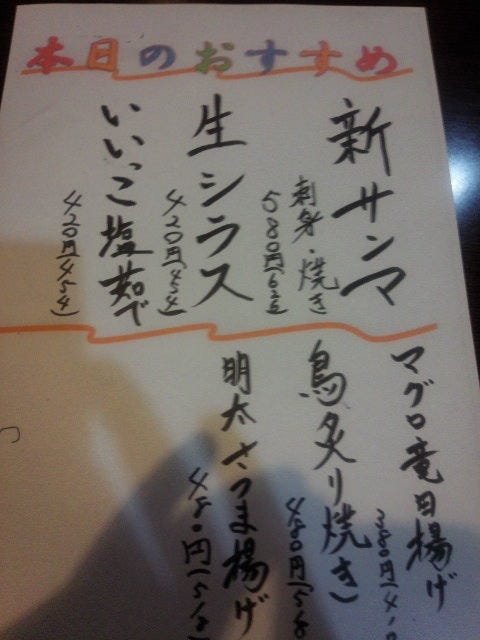 本日のおすすめ
新サンマ
刺身・焼き
580円(626)
生シラス
420円(454)
いいっこ塩茹で
420円(454)
マグロ竜田揚げ
380円(410
鳥炙り焼き)
480円(518
明太さつま揚げ
480円(518